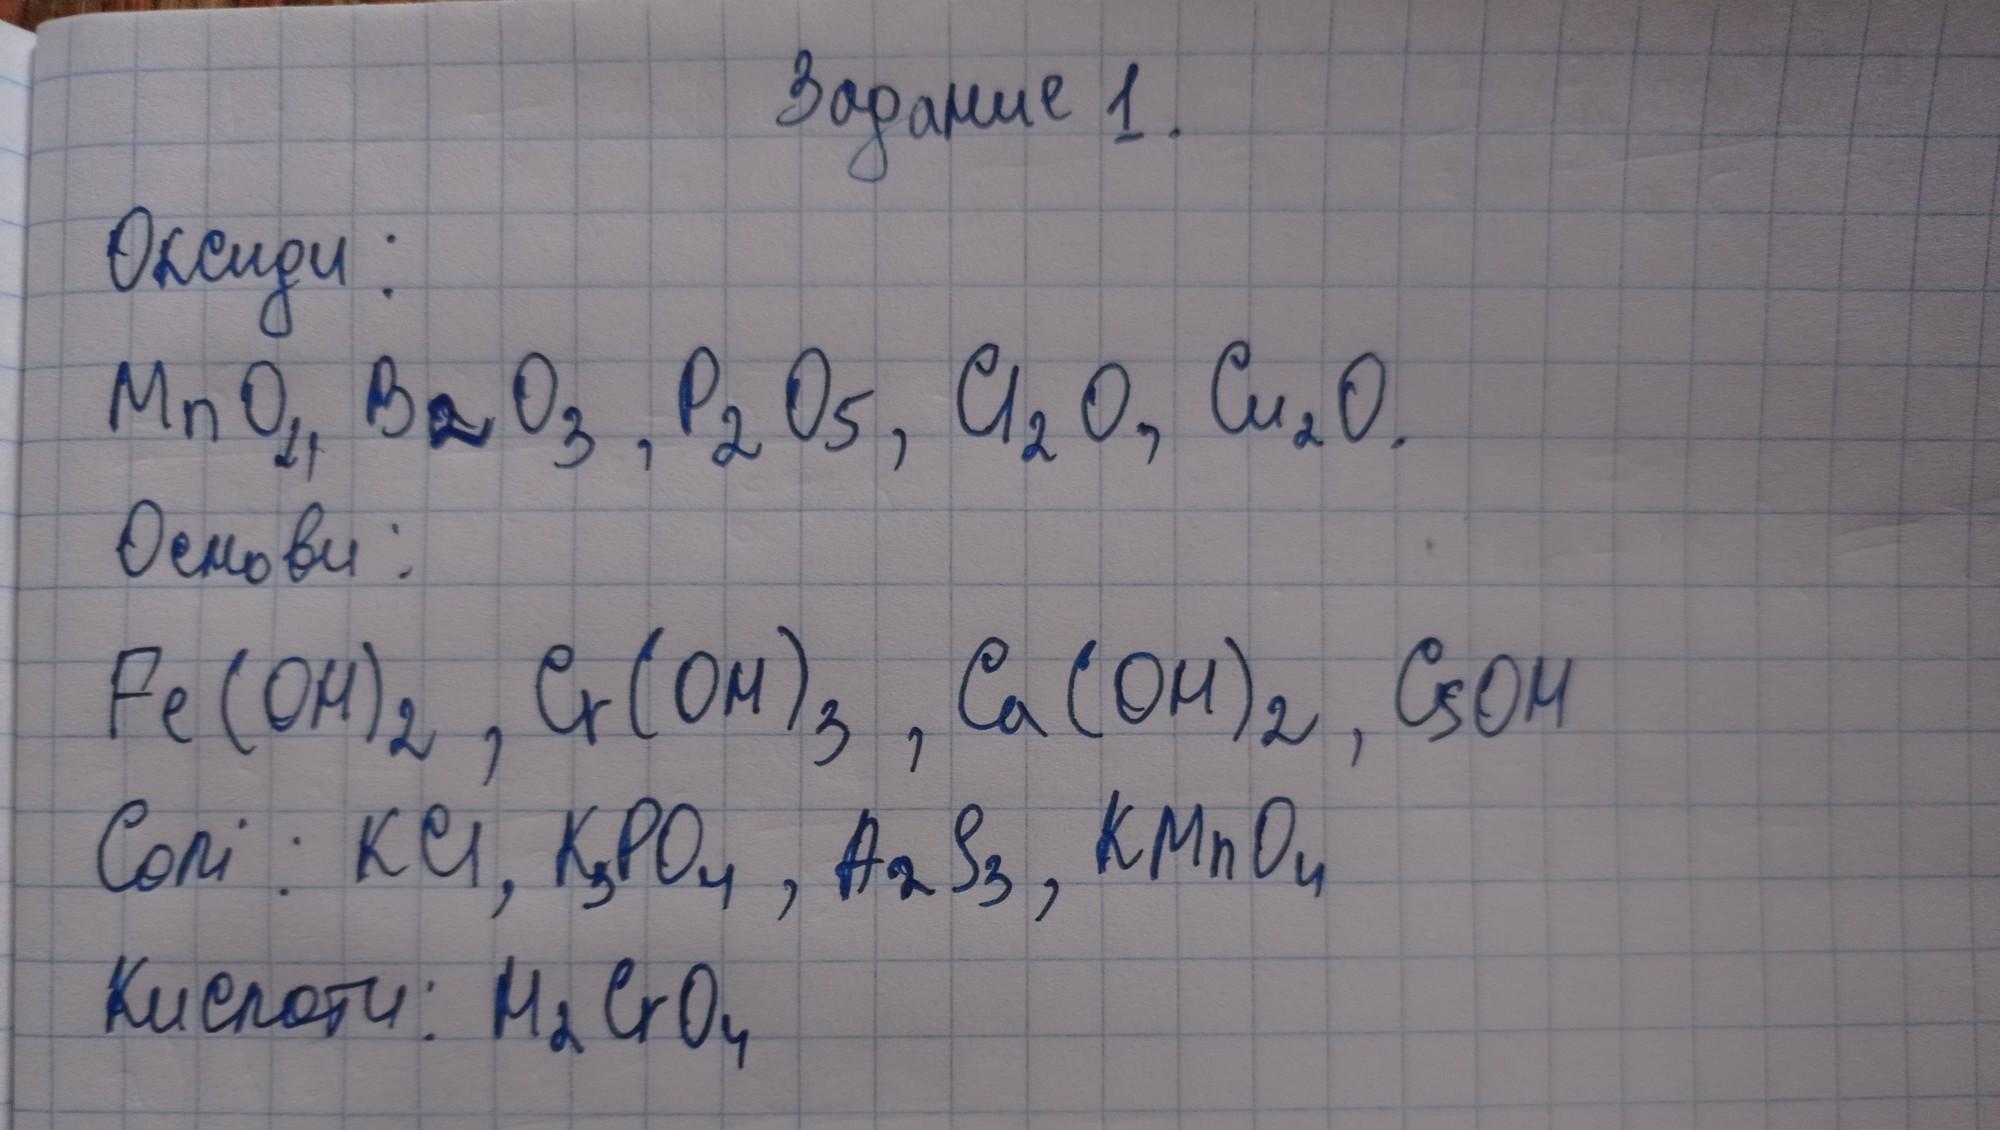 Задание 1.
Оксиди:
MnO₂, B₂O₃, P₂O₅, Cl₂O, Cu₂O.
Основи:
Fe(OH)₂, Cr(OH)₃, Ca(OH)₂, CsOH
Солі: KCl, K₃PO₄, A₂S₃, KMnO₄
Кислоти: H₂CrO₄